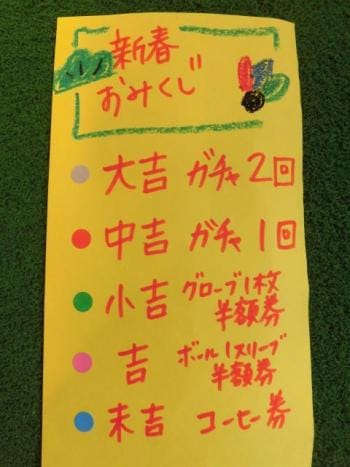 新春
おみくじ
大吉 ガチャ2回
中吉 ガチャ1回
小吉 グローブ1枚
半額券
吉 ボール1スリーブ
半額券
末吉 コーヒー券